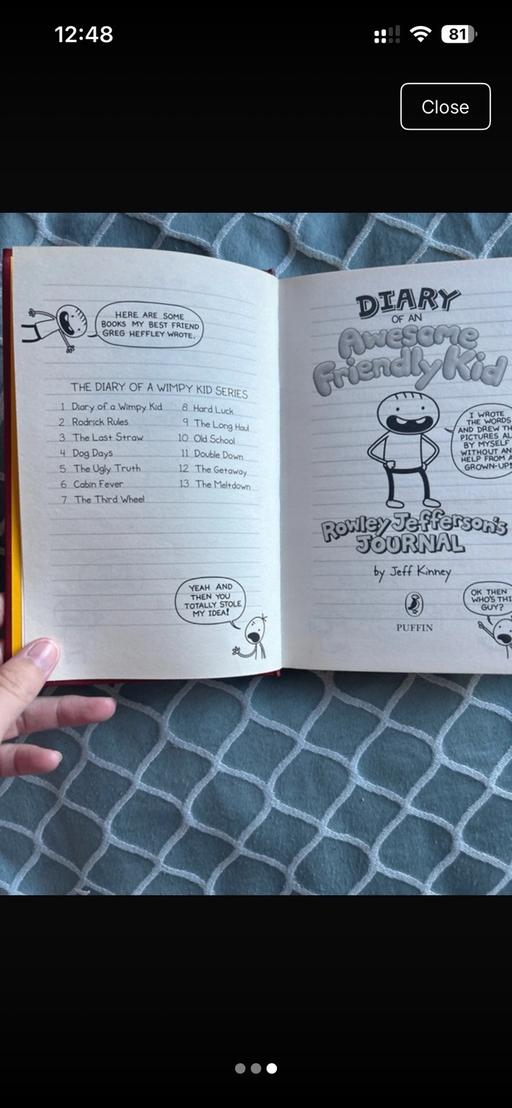 12:48
81
Close
HERE ARE SOME
BOOKS MY BEST FRIEND
GREG HEFFLEY WROTE.
THE DIARY OF A WIMPY KID SERIES
1 Diary of a Wimpy Kid
2 Rodrick Rules
3 The Last Straw
4 Dog Days
5 The Ugly Truth
6 Cabin Fever
7 The Third Wheel
8 Hard Luck
9 The Long Haul
10 Old School
11 Double Down
12 The Getaway
13 The Meltdown
YEAH AND
THEN YOU
TOTALLY STOLE
MY IDEA!
DIARY
OF AN
Awesome
Friendly Kid
I WROTE
THE WORDS
AND DREW TH
PICTURES AL
BY MYSELF
WITHOUT AN
HELP FROM A
GROWN-UP!
Rowley Jefferson's
JOURNAL
by Jeff Kinney
PUFFIN
OK THEN
WHO'S THI
GUY?